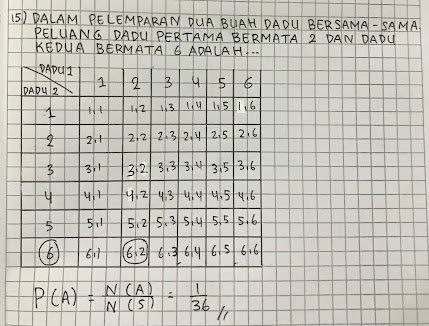 15) DALAM PELEMPARAN DUA BUAH DADU BERSAMA-SAMA.
PELUANG DADU PERTAMA BERMATA 2 DAN DADU
KEDUA BERMATA 6 ADALAH...
DADU 1
DADU 2
1 2 3 4 5 6
1 1,1 1,2 1,3 1,4 1,5 1,6
2 2,1 2,2 2,3 2,4 2,5 2,6
3 3,1 3,2 3,3 3,4 3,5 3,6
4 4,1 4,2 4,3 4,4 4,5 4,6
5 5,1 5,2 5,3 5,4 5,5 5,6
6 6,1 6,2 6,3 6,4 6,5 6,6
P(A) = N(A) / N(S) = 1 / 36 //